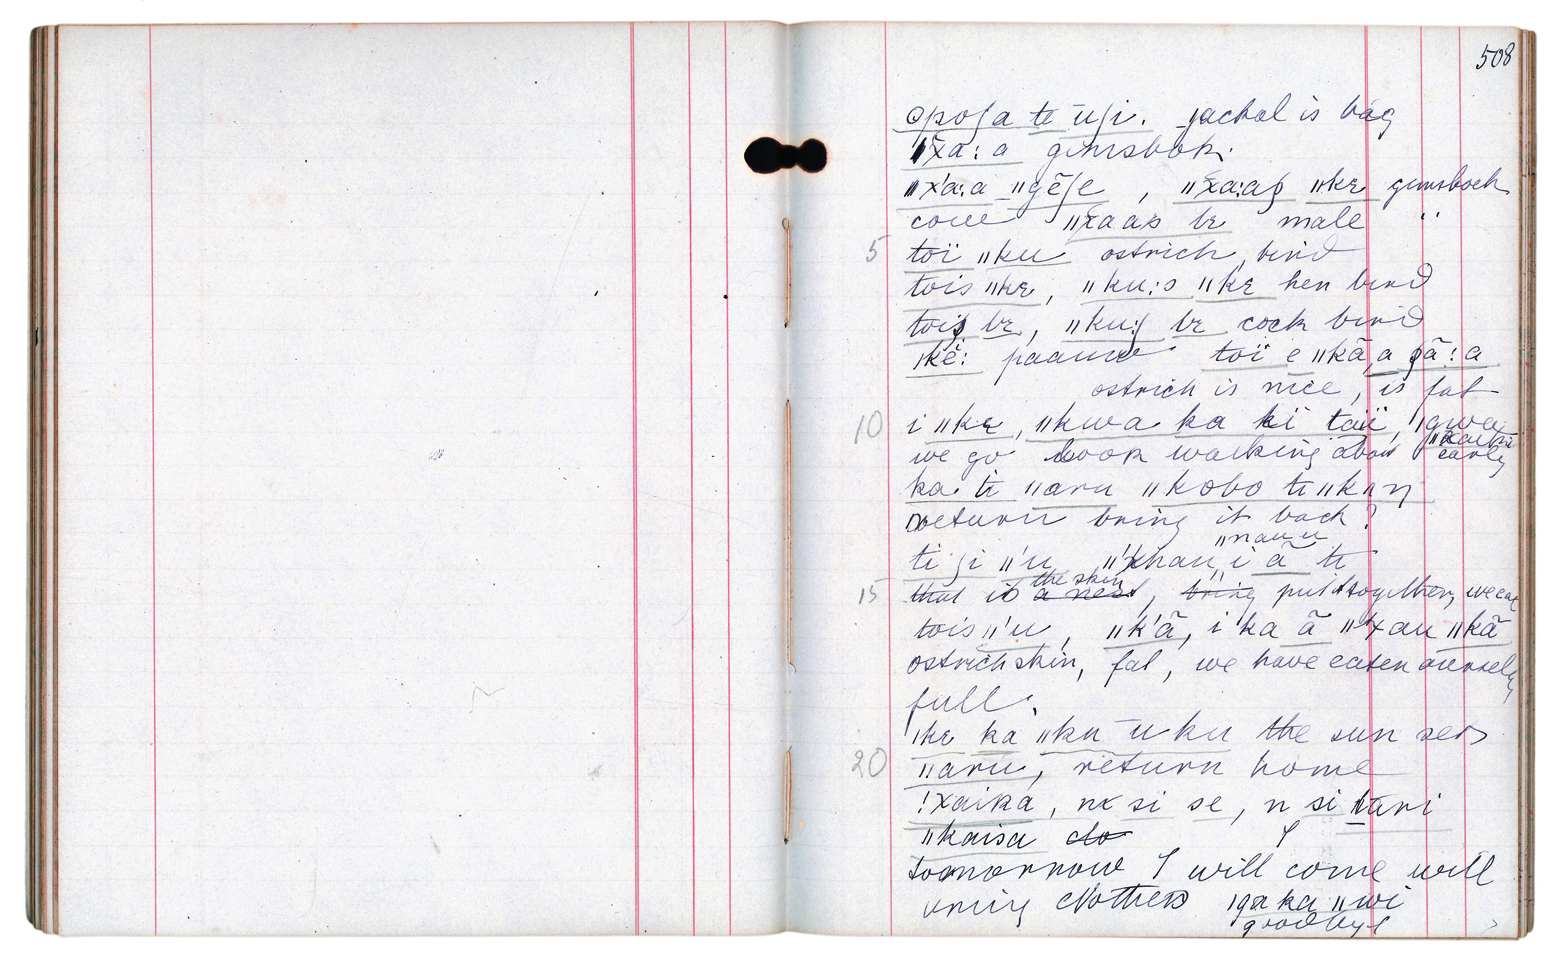 508
opoʃa te ūʃi. jackal is bag
ǁx̌a:a gemsbok.
ǁx̌'a:a ǁgēʃe , ǁx̌a:aʃ ǁkɛ gemsbock
cow ǁx̌aas bɛ male "
5 toï ǁku ostrich, bird
tois ǁkɛ, ǁku:s ǁkɛ hen bird
bɛ, ǁku:ʃ bɛ cock bird
ǀkē: paauw toï e ǁkā,a
ostrich is nice, is fat
10 i ǁkɛ, ǁkwa ka kï taïï, ǀgwa
ǁkaiki
we go look walking about early
ka ti ǁaru ǁkobo ti
return bring it back?
ǁnau u
ti ʃi ǁ'u i ā ti
the skin
15 that is a nest, bring put together, we eat
tois ǁ'u, ǁk'ā, i ka ā ǁ'xau ǁkā
ostrich skin, fat, we have eaten ourselves
full.
ǀkɛ ka ǁku ūku the sun sets
20 ǁaru, return home
!x̌aika, si se, n si ari
ǁkaisa do I
tomorrow I will come will
bring clothes ka ǁwi
goodbye